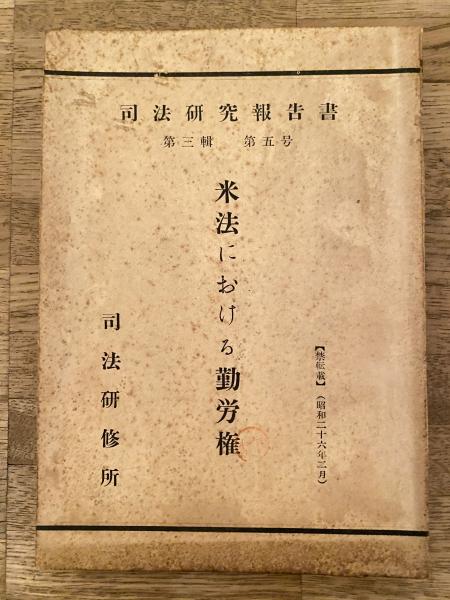 司法研究報告書
第三輯 第五号
米法における勤労権
【禁転載】(昭和二十六年三月)
司法研修所